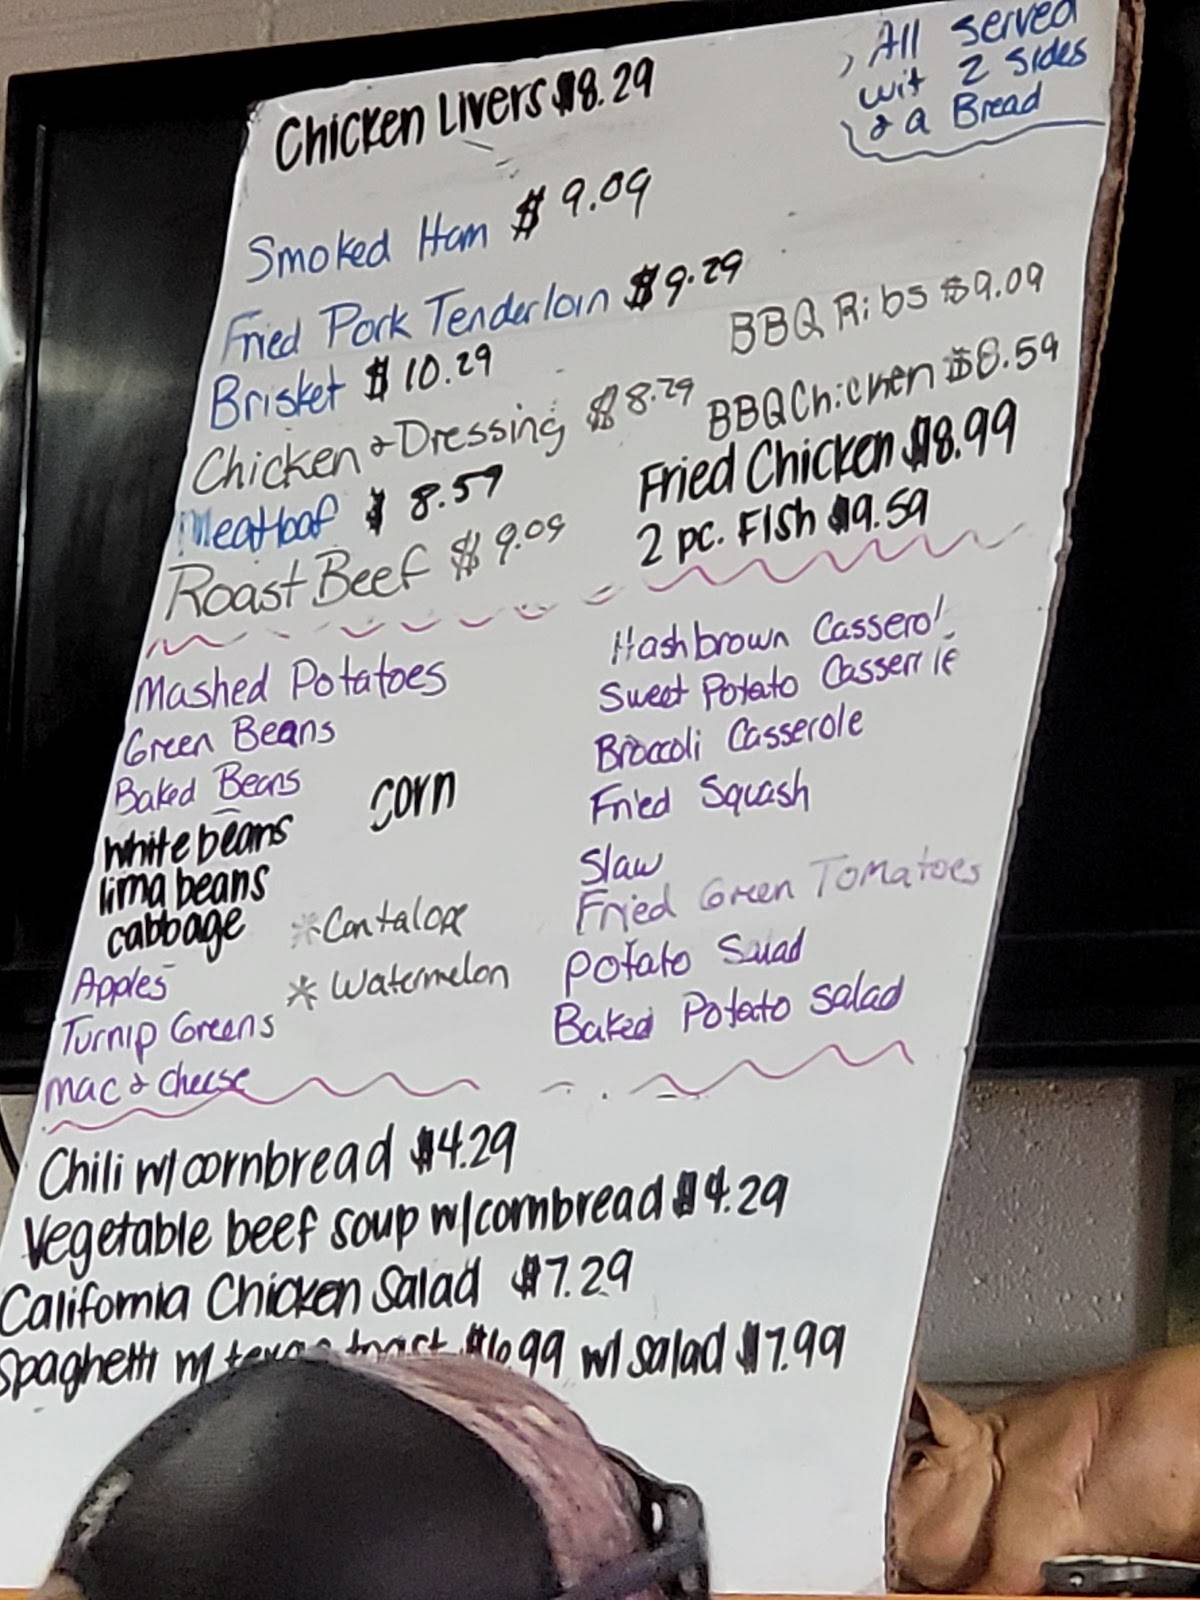 All served
wit 2 sides
& a Bread
Chicken Livers $8.29
Smoked Ham $9.09
Fried Pork Tenderloin $9.29
Brisket $10.29
Chicken & Dressing $8.29
Meatloaf $8.59
Roast Beef $9.09
BBQ Ribs $9.09
BBQ Chicken $8.59
Fried Chicken $8.99
2 pc. Fish $9.59
Mashed Potatoes
Green Beans
Baked Beans
white beans
lima beans
cabbage
Apples
Turnip Greens
Mac & cheese
corn
*Cantalope
* Watermelon
Hashbrown
Sweet Potato
Broccoli Casserole
Fried Squash
Slaw
Fried Green Tomatoes
Potato Salad
Baked Potato salad
Chili w/cornbread $4.29
Vegetable beef soup w/cornbread $4.29
California Chicken Salad $7.29
Spaghetti w/ toast $6.99 w/ salad $7.99